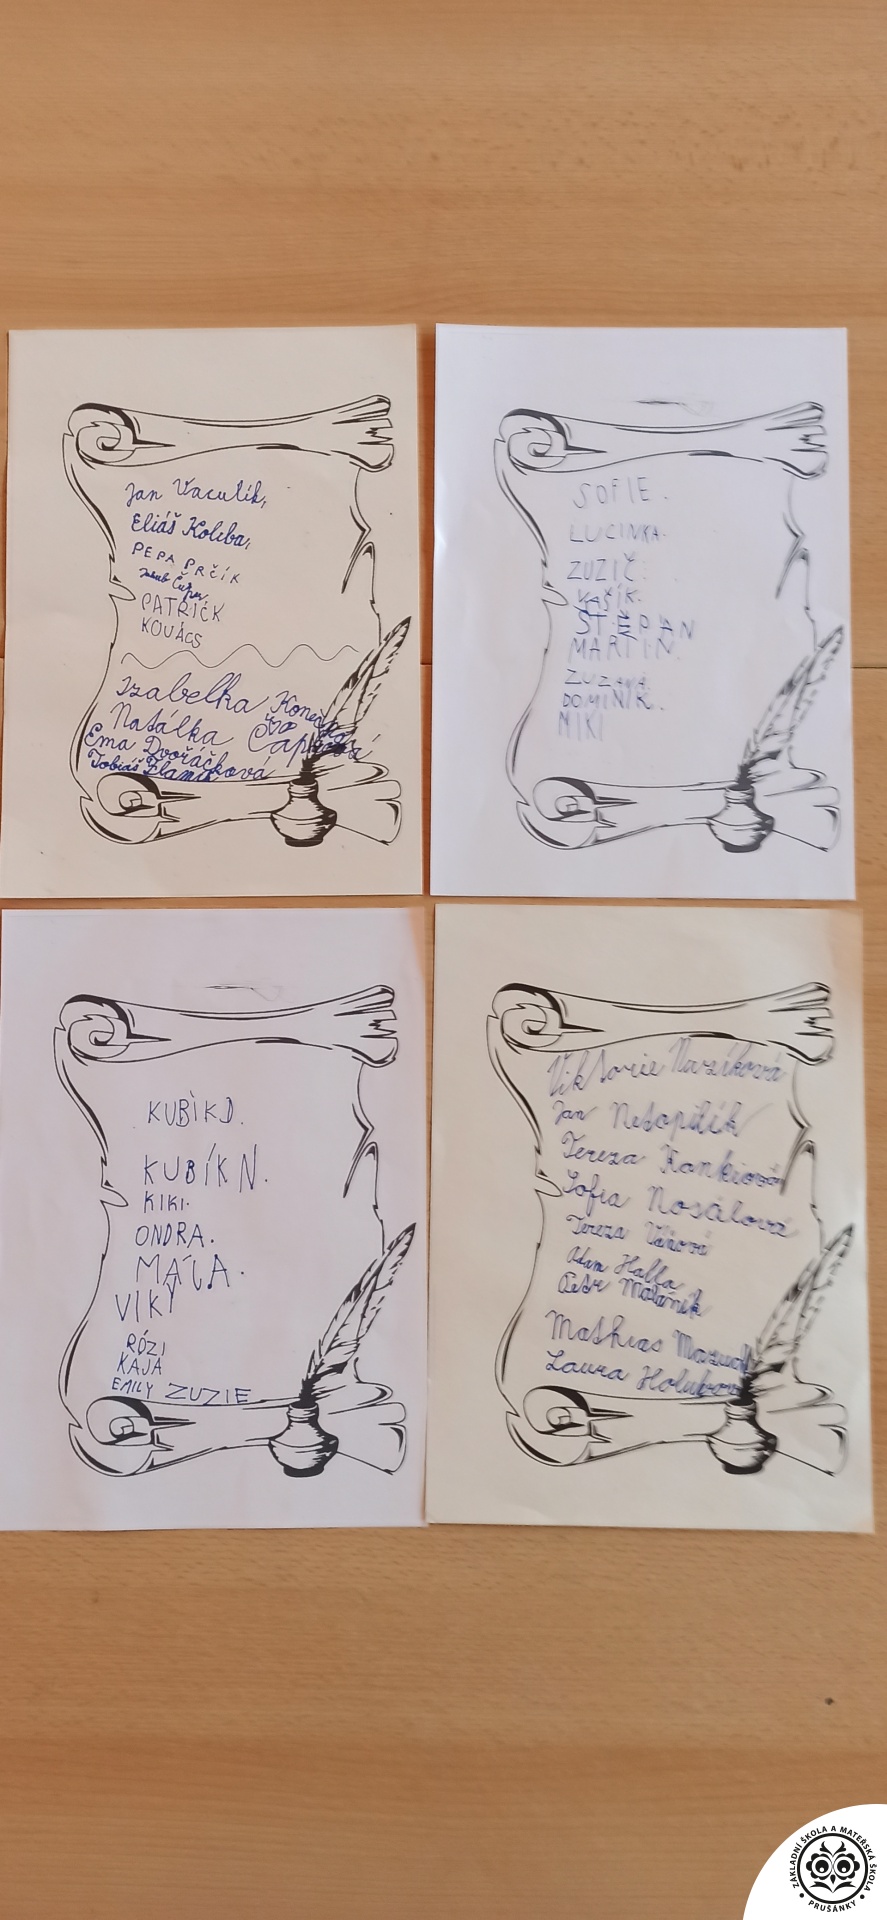 Jan Vaculík,
Eliáš Koliba,
PEPA PRČÍK
Jakub Čuper
PATRIČK
KOVÁCS
Izabelka Konečná
Natálka Čapková
Ema Dvořáčková
Tobiáš
SOFIE.
LUCINKA.
ZUZIČ.
VAŠÍK.
ŠTĚPÁN
MARTIN.
ZUZANA.
DOMINIK.
NIKI
KUBÍKD.
KUBÍKN.
KIKI.
ONDRA.
MÁJA.
VIKY
RÓZI
KAJA
EMILY ZUZIE
Viktorie
Jan Netopilík
Tereza
Sofia Nosálová
Tereza Váňová
Adam Halla
Petr
Mathias
Laura Holubová
ZÁKLADNÍ ŠKOLA A MATEŘSKÁ ŠKOLA
• PRUŠÁNKY •